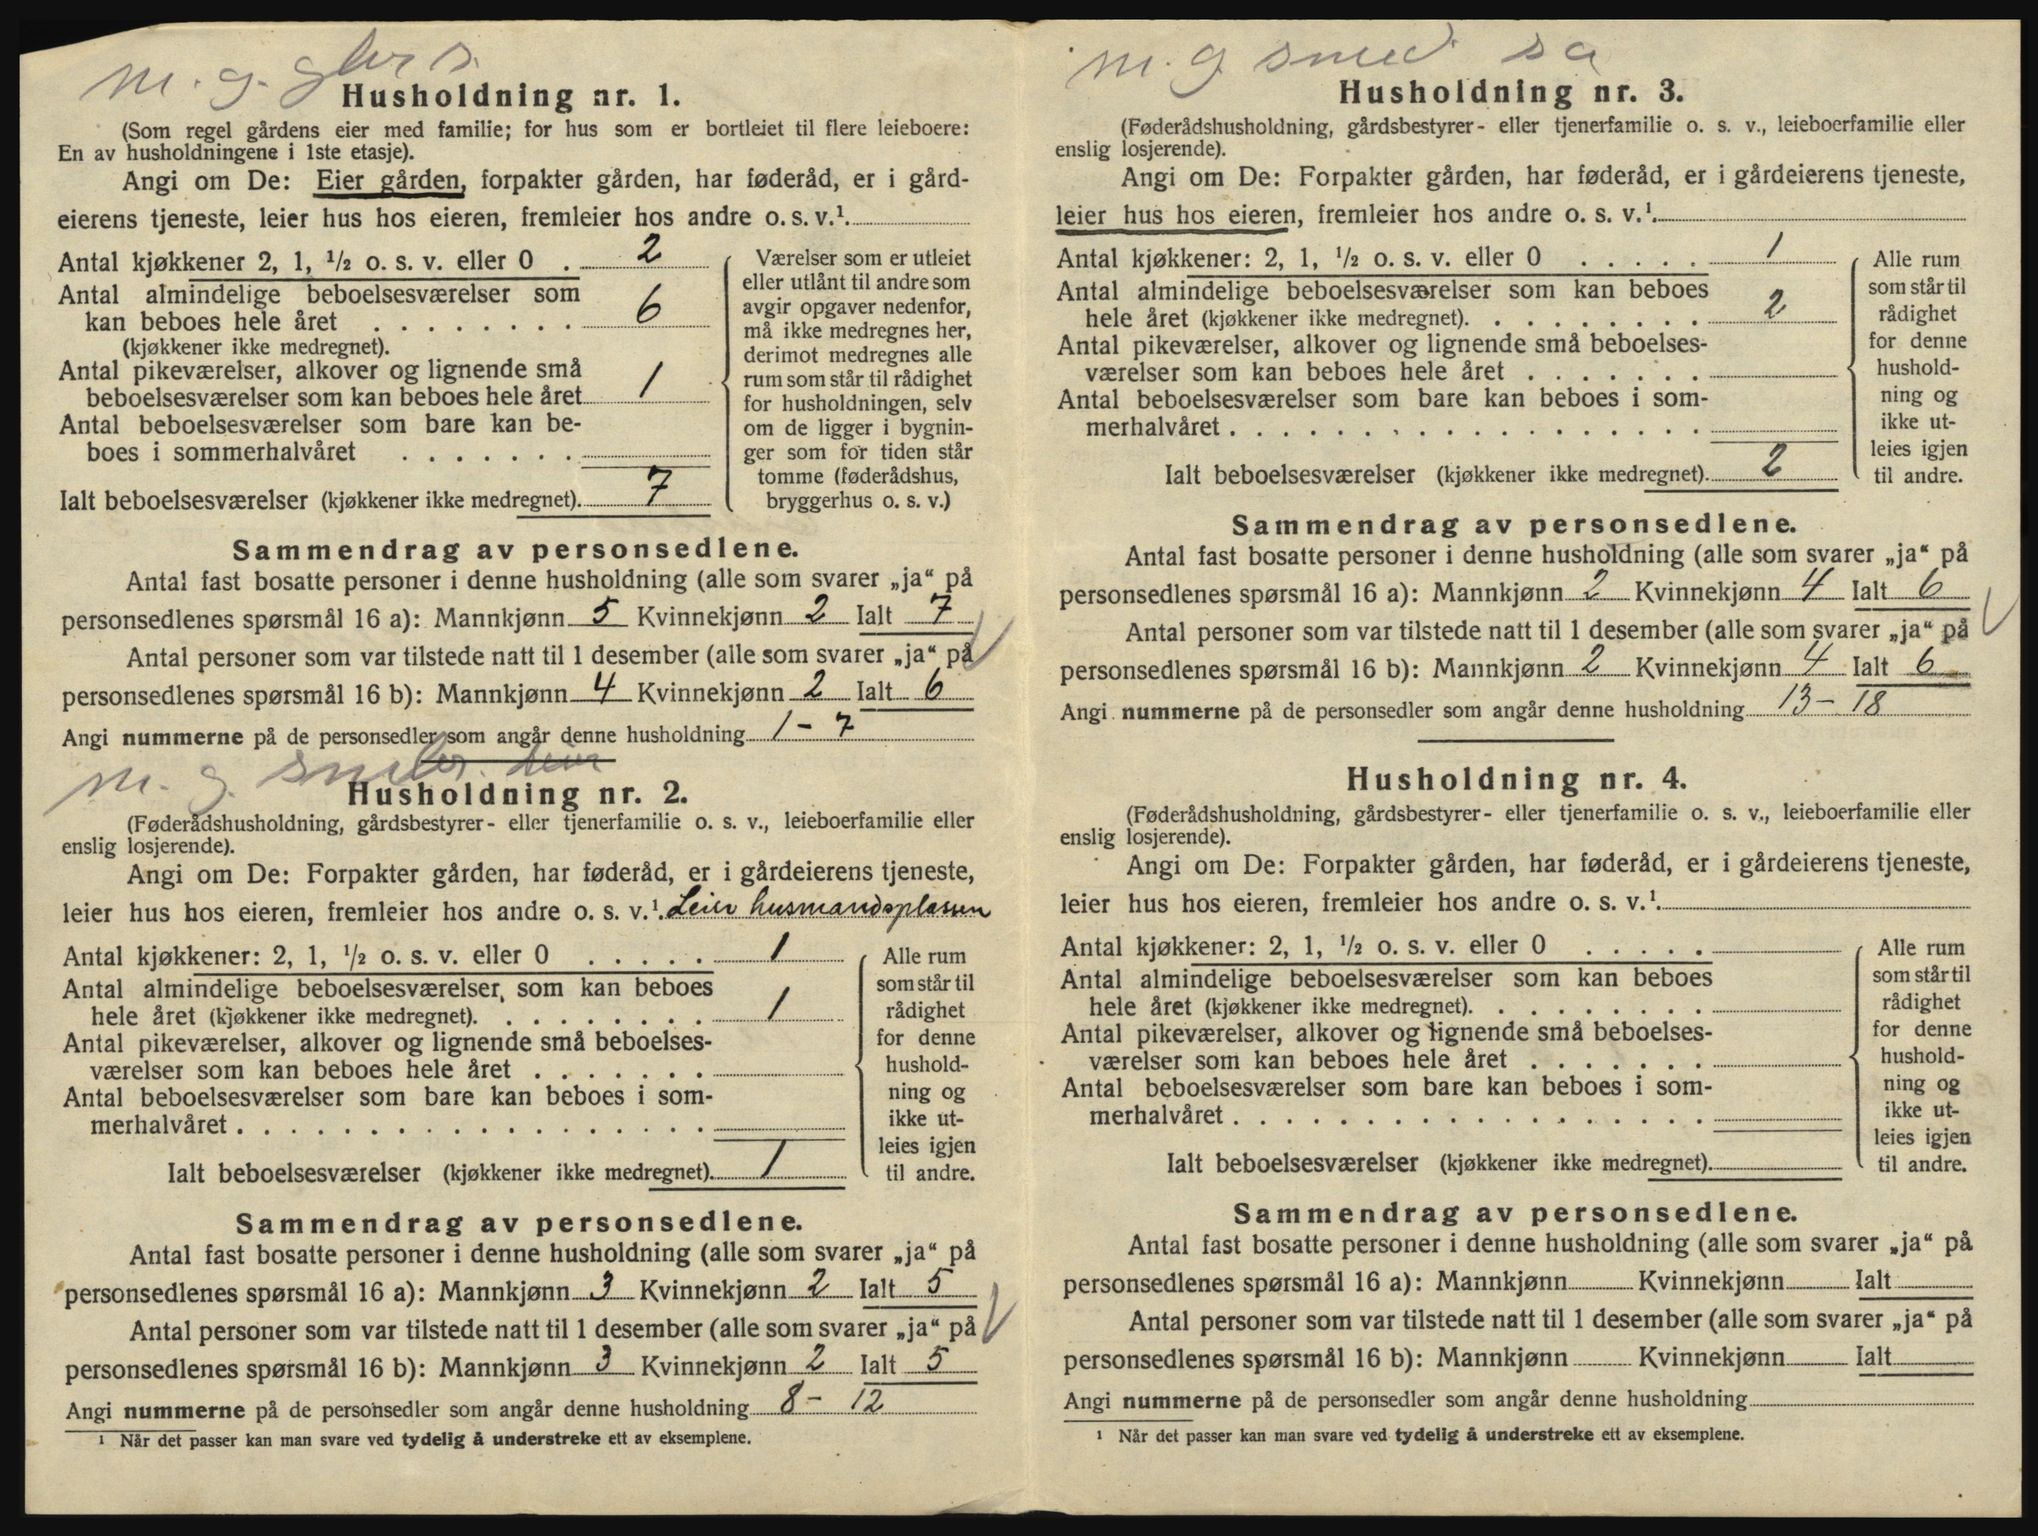 m. g.
Husholdning nr. 1.
(Som regel gårdens eier med familie; for hus som er bortleiet til flere leieboere:
En av husholdningene i 1ste etasje).
Angi om De: Eier gården, forpakter gården, har føderåd, er i gård-
eierens tjeneste, leier hus hos eieren, fremleier hos andre o. s. v.¹.
Antal kjøkkener 2, 1, ½ o. s. v. eller 0 . 2
Antal almindelige beboelsesværelser som
kan beboes hele året . . . . . . . . 6
(kjøkkener ikke medregnet).
Antal pikeværelser, alkover og lignende små
beboelsesværelser som kan beboes hele året 1
Antal beboelsesværelser som bare kan be-
boes i sommerhalvåret . . . . . . .
Ialt beboelsesværelser (kjøkkener ikke medregnet). 7
Værelser som er utleiet
eller utlånt til andre som
avgir opgaver nedenfor,
må ikke medregnes her,
derimot medregnes alle
rum som står til rådighet
for husholdningen, selv
om de ligger i bygnin-
ger som for tiden står
tomme (føderådshus,
bryggerhus o. s. v.)
Sammendrag av personsedlene.
Antal fast bosatte personer i denne husholdning (alle som svarer „ja“ på
personsedlenes spørsmål 16 a): Mannkjønn 5 Kvinnekjønn 2 Ialt 7
Antal personer som var tilstede natt til 1 desember (alle som svarer „ja“ på
personsedlenes spørsmål 16 b): Mannkjønn 4 Kvinnekjønn 2 Ialt 6
Angi nummerne på de personsedler som angår denne husholdning 1 - 7
m. g.
Husholdning nr. 2.
(Føderådshusholdning, gårdsbestyrer- eller tjenerfamilie o. s. v., leieboerfamilie eller
enslig losjerende).
Angi om De: Forpakter gården, har føderåd, er i gårdeierens tjeneste,
leier hus hos eieren, fremleier hos andre o. s. v.¹. Leier husmandsplassen
Antal kjøkkener: 2, 1, ½ o. s. v. eller 0 . . . . . 1
Antal almindelige beboelsesværelser som kan beboes
hele året (kjøkkener ikke medregnet). . . . . . . . . 1
Antal pikeværelser, alkover og lignende små beboelses-
værelser som kan beboes hele året . . . . . . .
Antal beboelsesværelser som bare kan beboes i som-
merhalvåret . . . . . . . . . . . . . . . . . .
Ialt beboelsesværelser (kjøkkener ikke medregnet). 1
Alle rum
som står til
rådighet
for denne
hushold-
ning og
ikke ut-
leies igjen
til andre.
Sammendrag av personsedlene.
Antal fast bosatte personer i denne husholdning (alle som svarer „ja“ på
personsedlenes spørsmål 16 a): Mannkjønn 3 Kvinnekjønn 2 Ialt 5
Antal personer som var tilstede natt til 1 desember (alle som svarer „ja“ på
personsedlenes spørsmål 16 b): Mannkjønn 3 Kvinnekjønn 2 Ialt 5
Angi nummerne på de personsedler som angår denne husholdning 8 - 12
¹ Når det passer kan man svare ved tydelig å understreke ett av eksemplene.
m. g. smed sa
Husholdning nr. 3.
(Føderådshusholdning, gårdsbestyrer- eller tjenerfamilie o. s. v., leieboerfamilie eller
enslig losjerende).
Angi om De: Forpakter gården, har føderåd, er i gårdeierens tjeneste,
leier hus hos eieren, fremleier hos andre o. s. v.¹.
Antal kjøkkener: 2, 1, ½ o. s. v. eller 0 . . . . . 1
Antal almindelige beboelsesværelser som kan beboes
hele året (kjøkkener ikke medregnet). . . . . . . . . 2
Antal pikeværelser, alkover og lignende små beboelses-
værelser som kan beboes hele året . . . . . . .
Antal beboelsesværelser som bare kan beboes i som-
merhalvåret . . . . . . . . . . . . . . . . . .
Ialt beboelsesværelser (kjøkkener ikke medregnet). 2
Alle rum
som står til
rådighet
for denne
hushold-
ning og
ikke ut-
leies igjen
til andre.
Sammendrag av personsedlene.
Antal fast bosatte personer i denne husholdning (alle som svarer „ja“ på
personsedlenes spørsmål 16 a): Mannkjønn 2 Kvinnekjønn 4 Ialt 6
Antal personer som var tilstede natt til 1 desember (alle som svarer „ja“ på
personsedlenes spørsmål 16 b): Mannkjønn 2 Kvinnekjønn 4 Ialt 6
Angi nummerne på de personsedler som angår denne husholdning 13 - 18
Husholdning nr. 4.
(Føderådshusholdning, gårdsbestyrer- eller tjenerfamilie o. s. v., leieboerfamilie eller
enslig losjerende).
Angi om De: Forpakter gården, har føderåd, er i gårdeierens tjeneste,
leier hus hos eieren, fremleier hos andre o. s. v.¹.
Antal kjøkkener: 2, 1, ½ o. s. v. eller 0 . . . . .
Antal almindelige beboelsesværelser som kan beboes
hele året (kjøkkener ikke medregnet). . . . . . . . .
Antal pikeværelser, alkover og lignende små beboelses-
værelser som kan beboes hele året . . . . . . .
Antal beboelsesværelser som bare kan beboes i som-
merhalvåret . . . . . . . . . . . . . . . . . .
Ialt beboelsesværelser (kjøkkener ikke medregnet).
Alle rum
som står til
rådighet
for denne
hushold-
ning og
ikke ut-
leies igjen
til andre.
Sammendrag av personsedlene.
Antal fast bosatte personer i denne husholdning (alle som svarer „ja“ på
personsedlenes spørsmål 16 a): Mannkjønn Kvinnekjønn Ialt
Antal personer som var tilstede natt til 1 desember (alle som svarer „ja“ på
personsedlenes spørsmål 16 b): Mannkjønn Kvinnekjønn Ialt
Angi nummerne på de personsedler som angår denne husholdning
¹ Når det passer kan man svare ved tydelig å understreke ett av eksemplene.